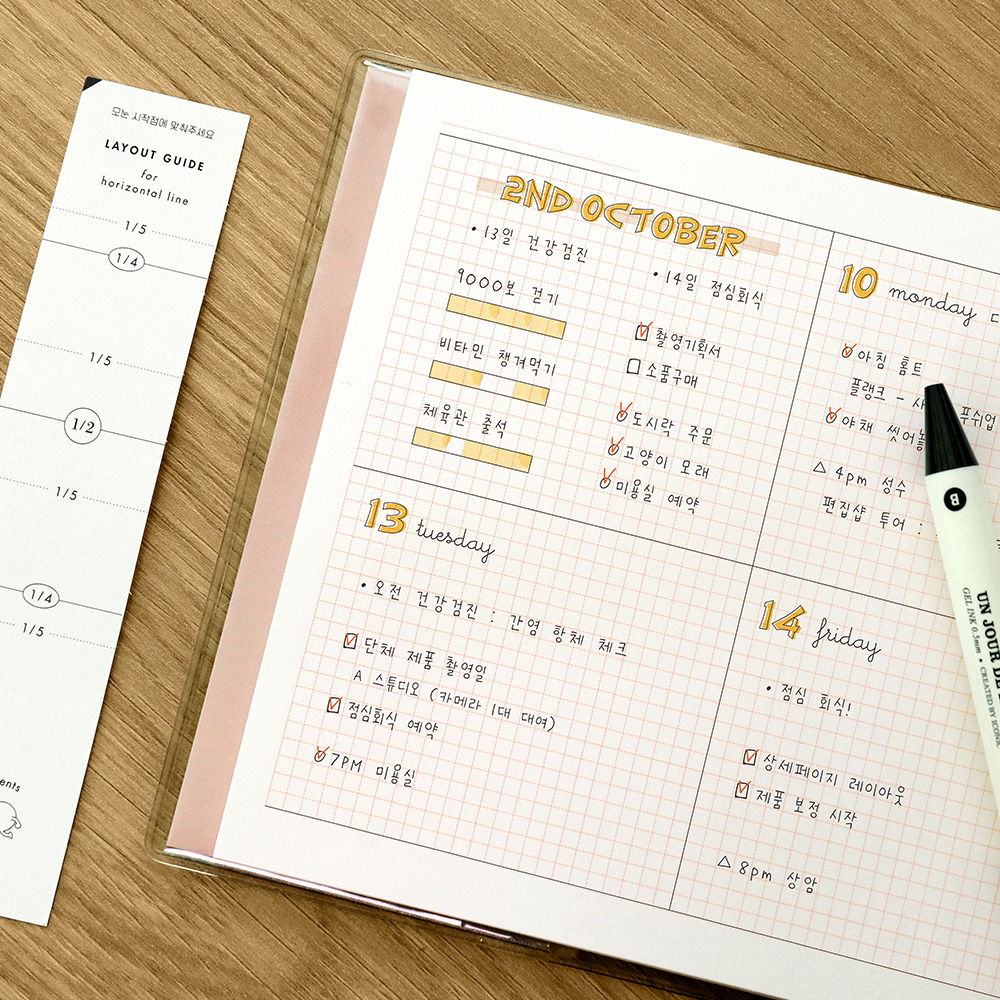 모눈 시작점에 맞춰주세요
LAYOUT GUIDE
for
horizontal line
1/5
1/4
1/5
1/2
1/5
1/4
1/5
2ND OCTOBER
• 13일 건강검진
9000보 걷기
비타민 챙겨먹기
체육관 출석
• 14일 점심회식
촬영기획서
소품구매
도시락 주문
고양이 모래
미용실 예약
10 monday
아침 홈트
플랭크 - 사 푸쉬업
야채 씻어놓
△ 4pm 성수
편집샵 투어 :
13 tuesday
• 오전 건강검진 : 간염 항체 체크
단체 제품 촬영일
A 스튜디오 (카메라 1대 대여)
점심회식 예약
7PM 미용실
14 friday
• 점심 회식!
상세페이지 레이아웃
제품 보정 시작
△ 8pm 상암
B
UN JOUR DE
GEL INK 0.5mm • CREATED BY ICONI